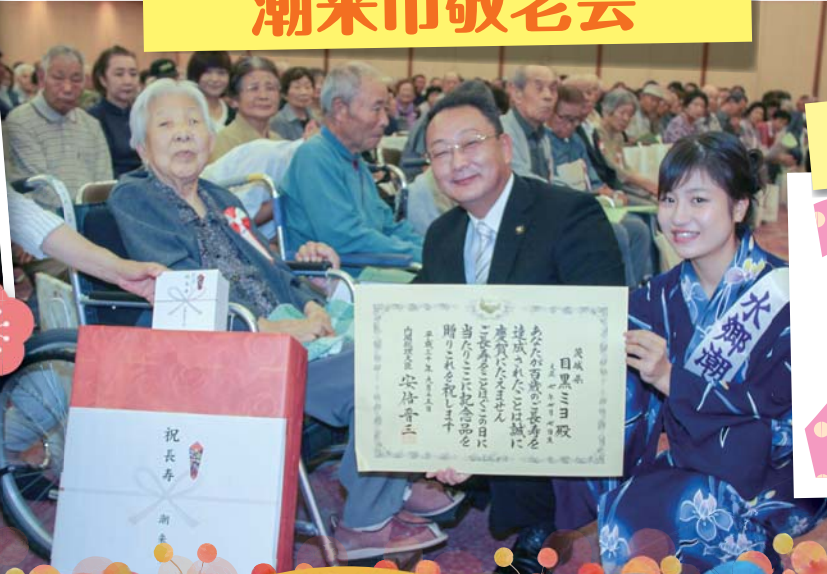 潮来市敬老会
茨城県
目黒ミヨ殿
あなたが百歳のご長寿を
達成されたことは誠に
慶賀にたえません
ご長寿をことほぐこの日に
当たりここに記念品を
贈りこれを祝します
平成三十年九月十五日
内閣総理大臣 安倍晋三
水郷潮
祝長寿
潮来